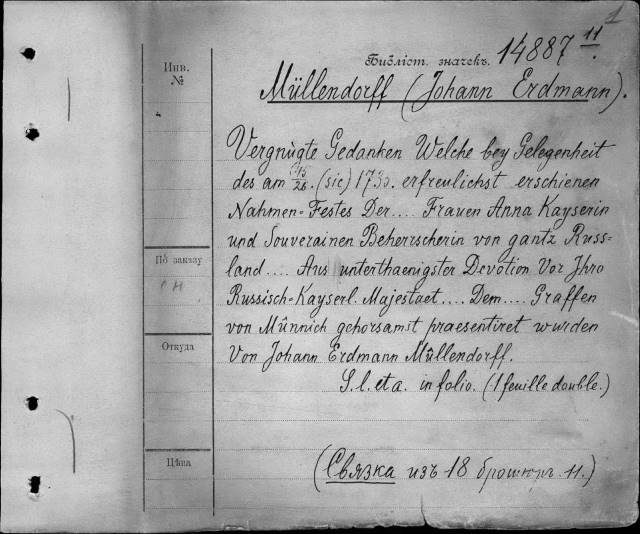 1
Инв.
№
Бібліст. значекъ. 14887 11.
Müllendorff (Johann Erdmann).
Vergnùgte Gedanken Welche bey Gelegenheit
des am 15/26. (sic) 1730. erfreulichst erschienen
Nahmen=Festes Der.... Frauen Anna Kayserin
und Souverainen Beherrscherin von gantz Russ=
land.... Aus unterthaenigster Devotion Vor Ihro
Russisch=Kayserl. Majestaet.... Dem.... Graffen
von Mûnnich gehorsamst praesentiret wurden
Von Johann Erdmann Mûllendorff.
S. l. et a. in folio. (1 feuille double.)
По заказу
Откуда
Цѣна
(Связка изъ 18 брошюръ. 11.)